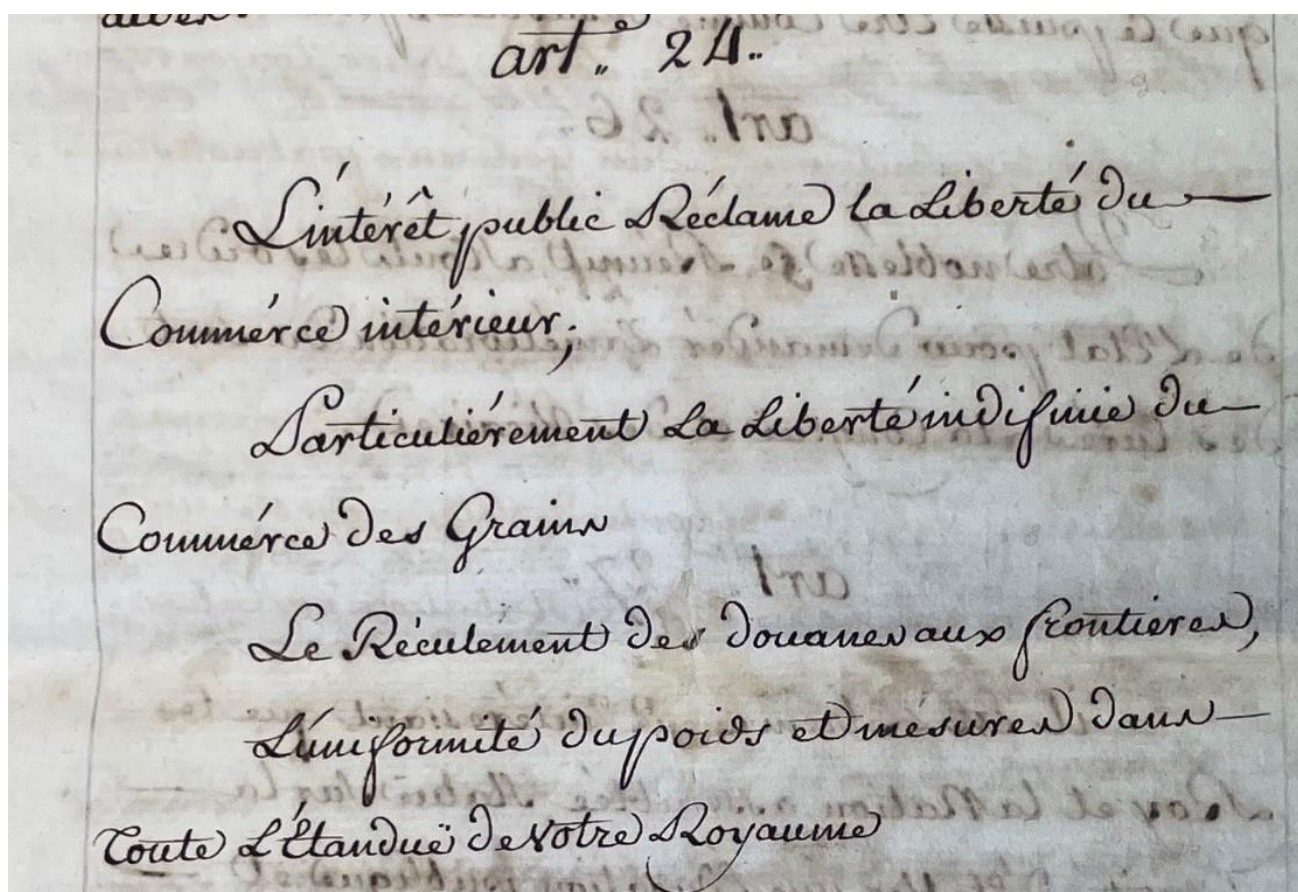 art. 24.
L'intérêt public Réclame la Liberté du
Commérce intérieur;
Particuliérement La Liberté indifinie du
Commérce des Grains
Le Réculement des douanes aux frontieres,
L'uniformité du poids et mésures dans
Toute L'Étanduë de votre Royaume